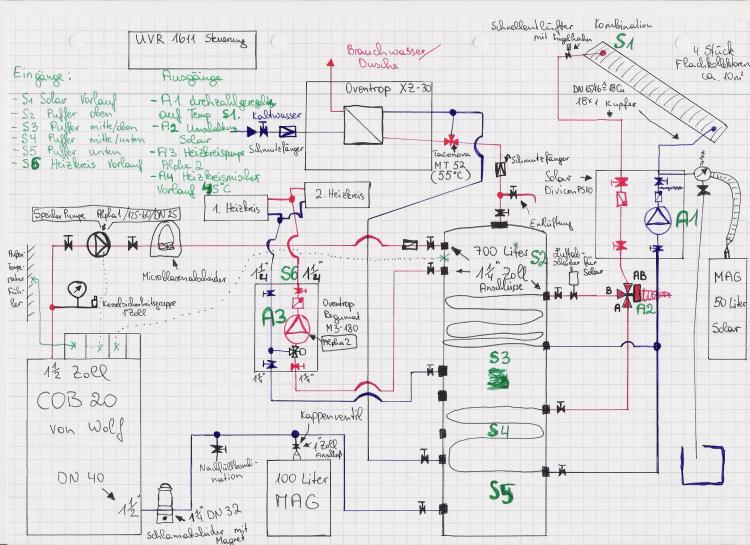 UVR 1611 Steuerung
Eingänge:
- S1 Solar Vorlauf
- S2 Puffer oben
- S3 Puffer mitte/oben
- S4 Puffer mitte/unten
- S5 Puffer unten
- S6 Heizkreis Vorlauf
Ausgänge
- A1 drehzahlgeregelt
auf Temp S1.
- A2 Umschaltung
Solar
- A3 Heizkreispumpe
Alpha 2
- A4 Heizkreismischer
Vorlauf 45°C
Brauchwasser/
Dusche
Kaltwasser
Schmutzfänger
Oventrop XZ-30
Taconova
MT 52
(55°C)
Schmutzfänger
Entlüftung
Schnellentlüfter Kombination
mit Kugelhahn
S1
4 Stück
Flachkollektoren
ca. 10m²
18x1 Kupfer
Solar
Divicon PS10
A1
MAG
50 Liter
Solar
1. Heizkreis
2. Heizkreis
Alpha1/125-60/DN25
Microblasenabscheider
Außen
Tempe
ratur
Füh
ler
Kesselsicherheitsgruppe
1 Zoll
1½ Zoll
COB 20
von Wolf
DN 40
1½"
1¼" DN 32
Schlammabscheider mit
Magnet
Nachfüllkombi-
nation
Kappenventil
1 Zoll
100 Liter
MAG
1¼"
S6
1¼"
A3
Oventrop
Regumat
M3-180
Alpha 2
1¼"
1¼"
700 Liter
S2
1¼" Zoll
Anschlüsse
Luftab-
scheider für
Solar
B
AB
A
A2
S3
S4
S5